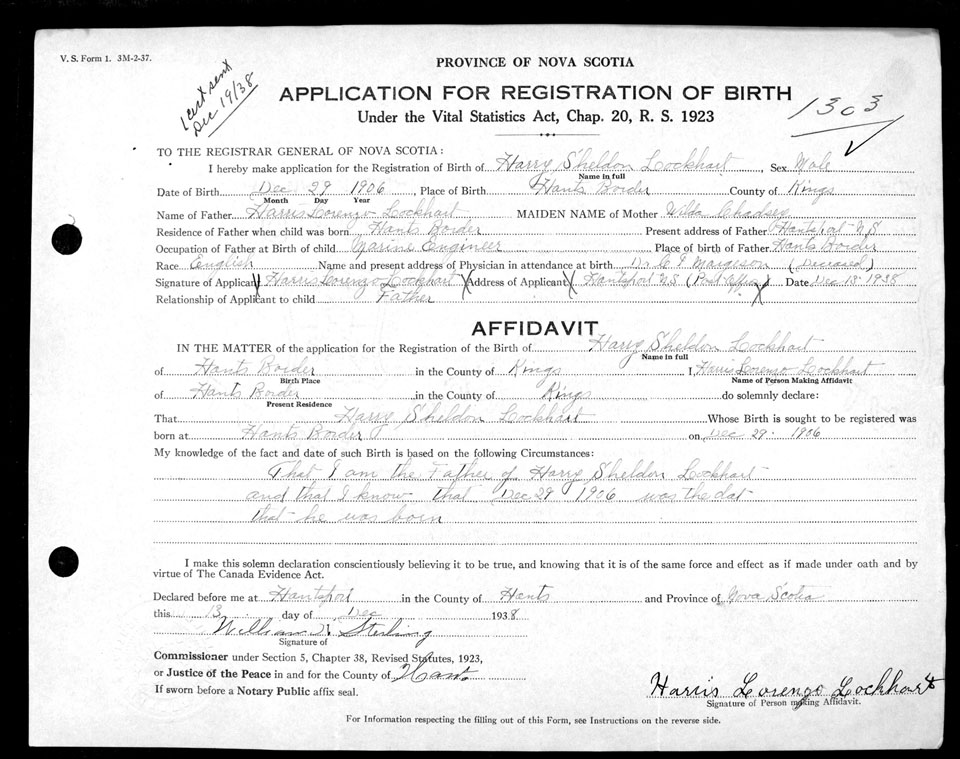 V. S. Form 1. 3M-2-37.
PROVINCE OF NOVA SCOTIA
Cert sent
Dec 19/38
APPLICATION FOR REGISTRATION OF BIRTH
1303
Under the Vital Statistics Act, Chap. 20, R. S. 1923
TO THE REGISTRAR GENERAL OF NOVA SCOTIA:
I hereby make application for the Registration of Birth of Harry Sheldon Lockhart Sex Male
Name in full
Date of Birth Dec 29 1906, Place of Birth Hants Border County of Kings
Month Day Year
Name of Father Harris Lorenzo Lockhart MAIDEN NAME of Mother Wilda Chadsey
Residence of Father when child was born Hants Border Present address of Father Hantsport N.S
Occupation of Father at Birth of child Marine Engineer Place of birth of Father Hants Border
Race English Name and present address of Physician in attendance at birth Dr C I Margeson (Deceased)
Signature of Applicant X Harris Lorenzo Lockhart X Address of Applicant X Hantsport N.S (Post Office) X Date Dec 13 1938
Relationship of Applicant to child Father
AFFIDAVIT
IN THE MATTER of the application for the Registration of the Birth of Harry Sheldon Lockhart
Name in full
of Hants Border in the County of Kings I, Harris Lorenzo Lockhart
Birth Place Name of Person Making Affidavit
of Hants Border in the County of Kings do solemnly declare:
Present Residence
That Harry Sheldon Lockhart Whose Birth is sought to be registered was
born at Hants Border on Dec 29. 1906
My knowledge of the fact and date of such Birth is based on the following Circumstances:
That I am the Father of Harry Sheldon Lockhart
and that I know that Dec 29 1906 was the dat
that he was born
I make this solemn declaration conscientiously believing it to be true, and knowing that it is of the same force and effect as if made under oath and by
virtue of The Canada Evidence Act.
Declared before me at Hantsport in the County of Hants and Province of Nova Scotia
this 13 day of Dec 1938
William N Sterling
Signature of
Commissioner under Section 5, Chapter 38, Revised Statutes, 1923,
or Justice of the Peace in and for the County of Hants
If sworn before a Notary Public affix seal.
Harris Lorenzo Lockhart
Signature of Person making Affidavit.
For Information respecting the filling out of this Form, see Instructions on the reverse side.